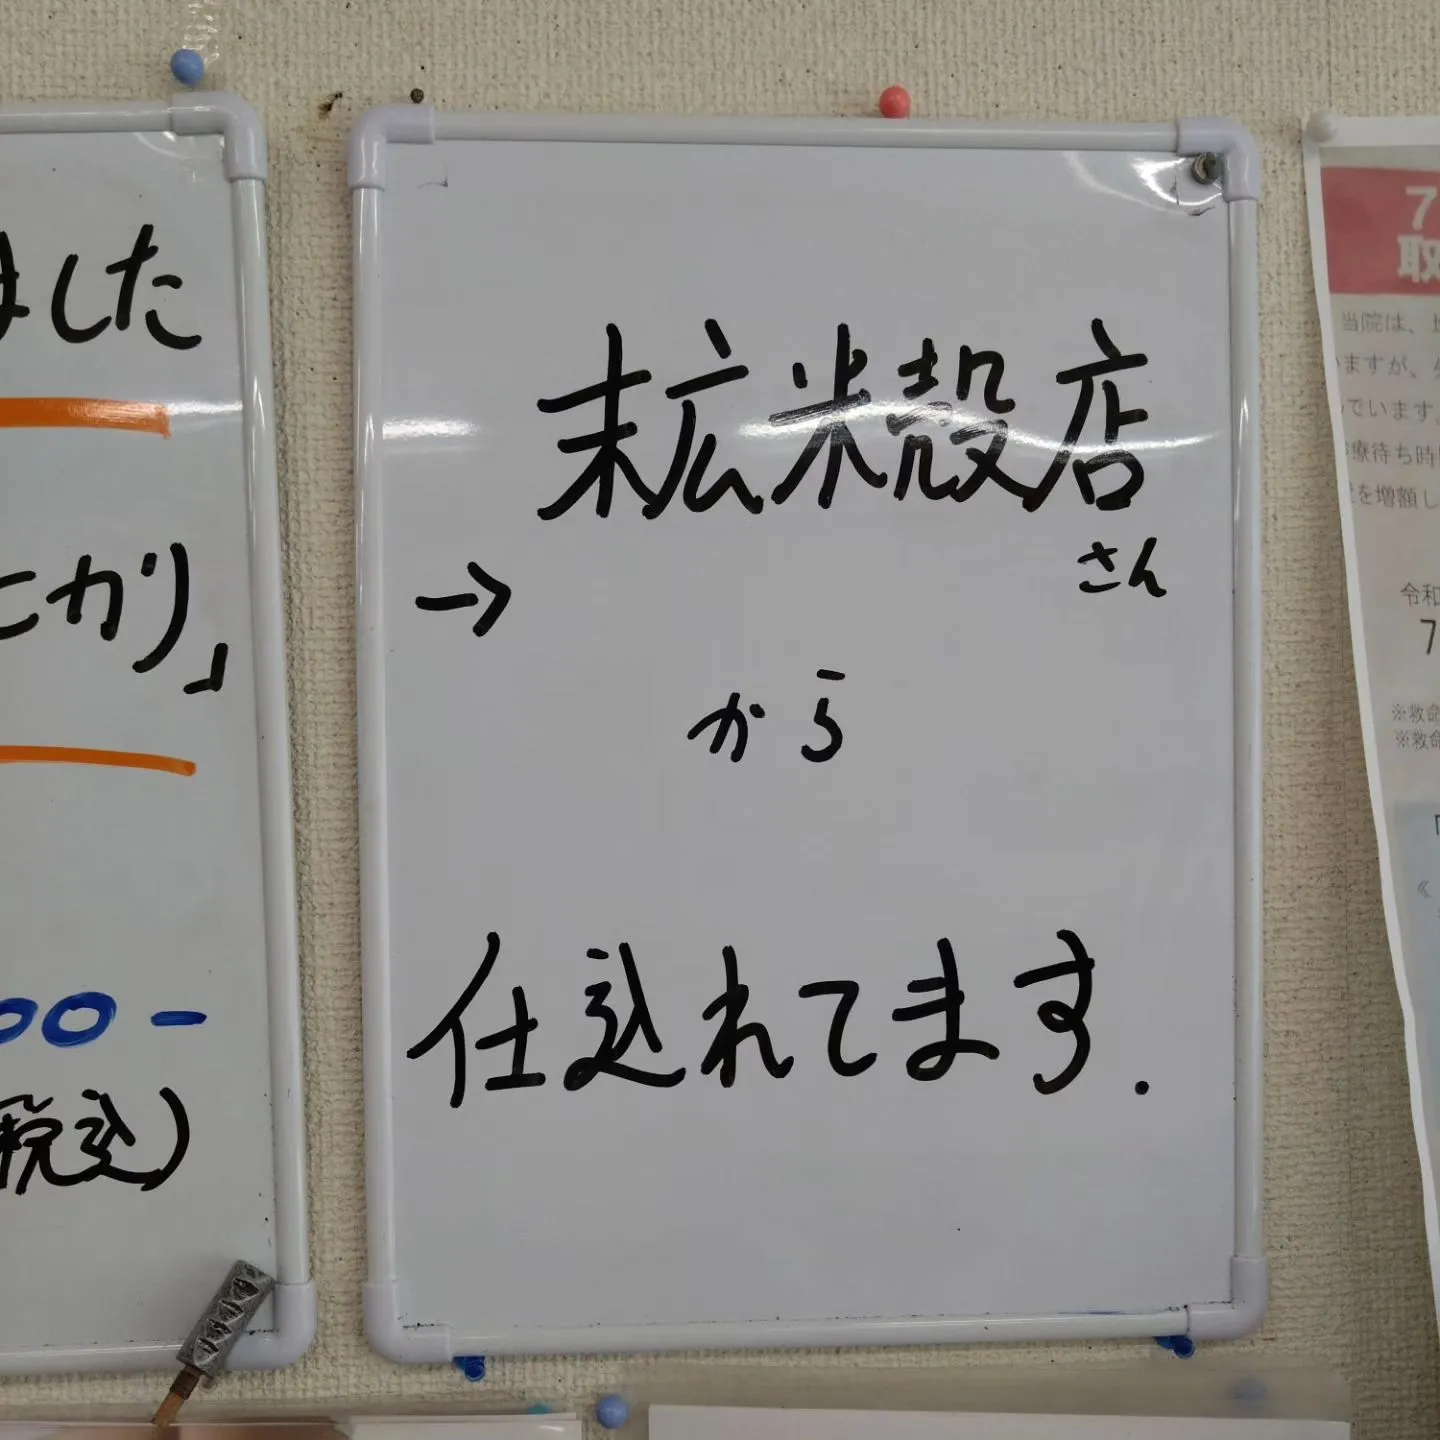 ました
こかり」
00-
税込)
末広米穀店
さん
→
から
仕込れてます.
7
取
当院は、
ますが、
でいます。
療待ち時
を増額し
令和
7
※救命
※救命